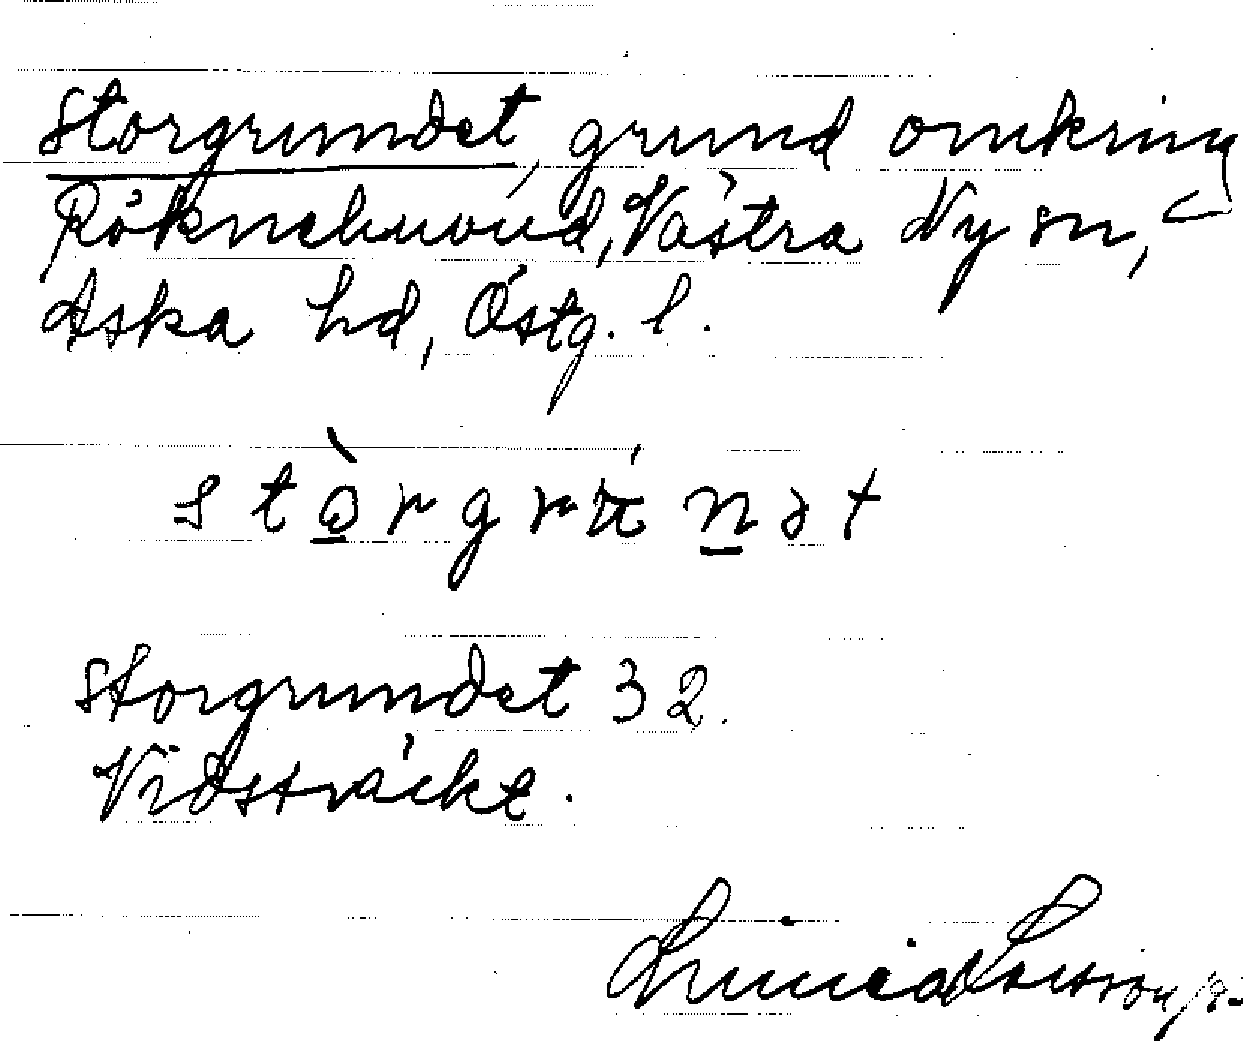 Storgrundet, grund omkring
Röknehuvud, Västra Ny sn,
Aska hd, Östg. l.
stɔ̀rgrúnət
Storgrundet 32.
Vidsträckt.
Linnea Larsson